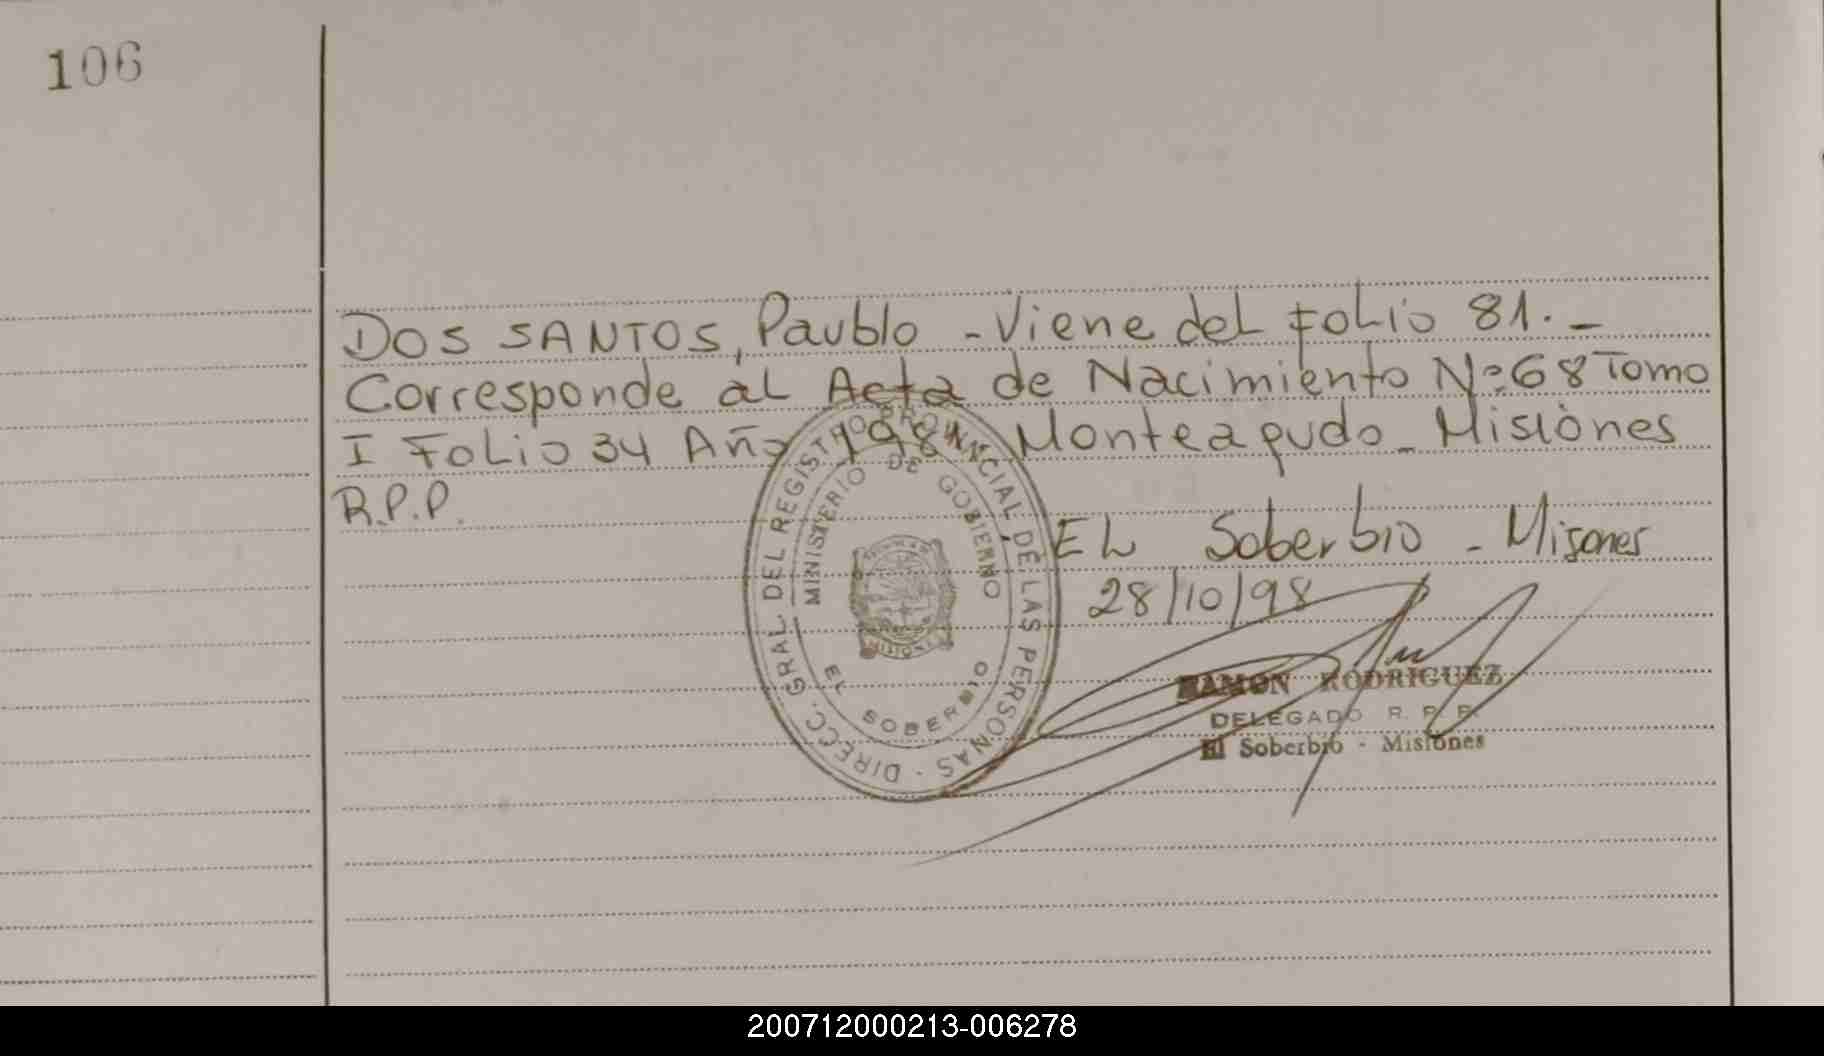 106
DOS SANTOS, Paublo - Viene del Folio 81. -
Corresponde al Acta de Nacimiento Nº 68 Tomo
I Folio 34 Año 1981 Monteagudo - Misiones
R.P.P.
DIRECC. GRAL. DEL REGISTRO PROVINCIAL DE LAS PERSONAS
MINISTERIO DE GOBIERNO
MISIONES
EL SOBERBIO
EL Soberbio - Misones
28/10/98
RAMON RODRIGUEZ
DELEGADO R. P. P.
El Soberbio - Misiones
200712000213-006278